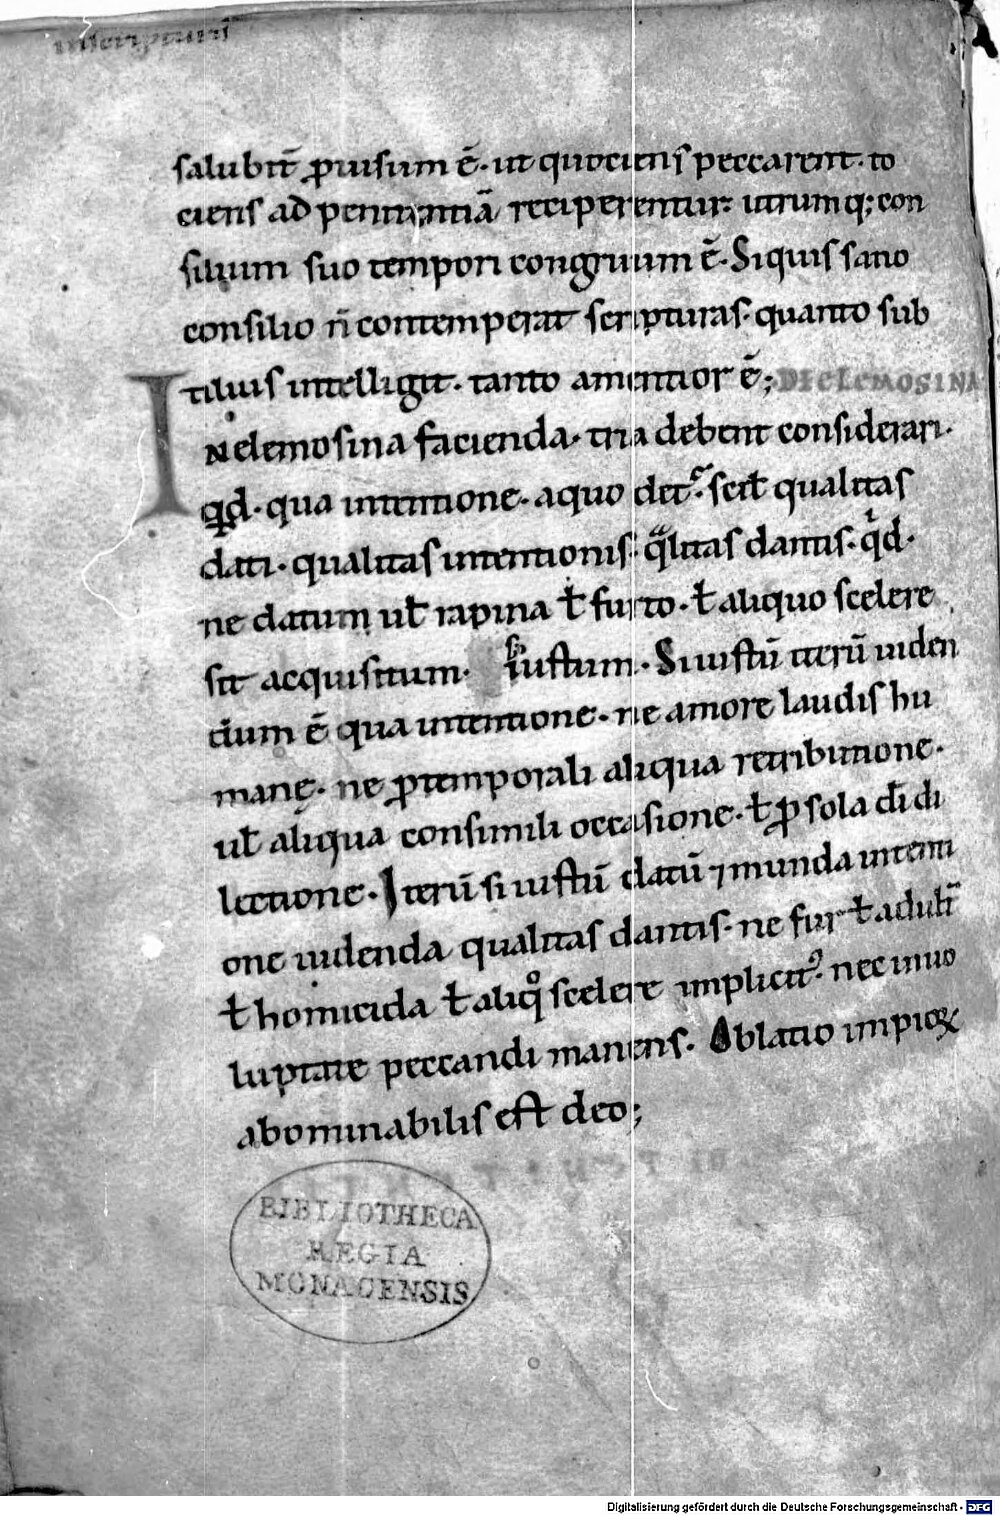 salubrit̄ ꝓuisum ē· ut quociens peccarent· to
ciens ad penitentiā reciperentur· utrumq; con
silium suo tempori congruum ē· Siquis sano
consilio n̄ contemperat scripturas· quanto sub
tilius intelligit· tanto amentior ē; DE ELEMOSINA
IN elemosina facienda· tria debent considerari·
qd· qua intentione· aquo det᷒· scil̄ qualitas
dati· qualitas intentionis· qͣlitas dantis· qͥd·
ne datum ul̄ rapina ł furto· ł aliquo scelere
sit acquisitum· s; iustum· Si iustū iterū uiden
dum ē qua intentione· ne amore laudis hu
manę· ne ꝓtemporali aliqua retributione·
ul̄ aliqua consimili occasione· ł ꝓ sola dī di
lectione· Iterū si iustū datū ⁊ munda intenti
one uidenda qualitas dantis· ne fur ł adult̄
ł homicida ł aliqͦ scelere implicit᷒· nec in uo
luptate peccandi manens· Oblatio impioꝝ
abominabilis est deo;
BIBLIOTHECA
REGIA
MONACENSIS
Digitalisierung gefördert durch die Deutsche Forschungsgemeinschaft - DFG